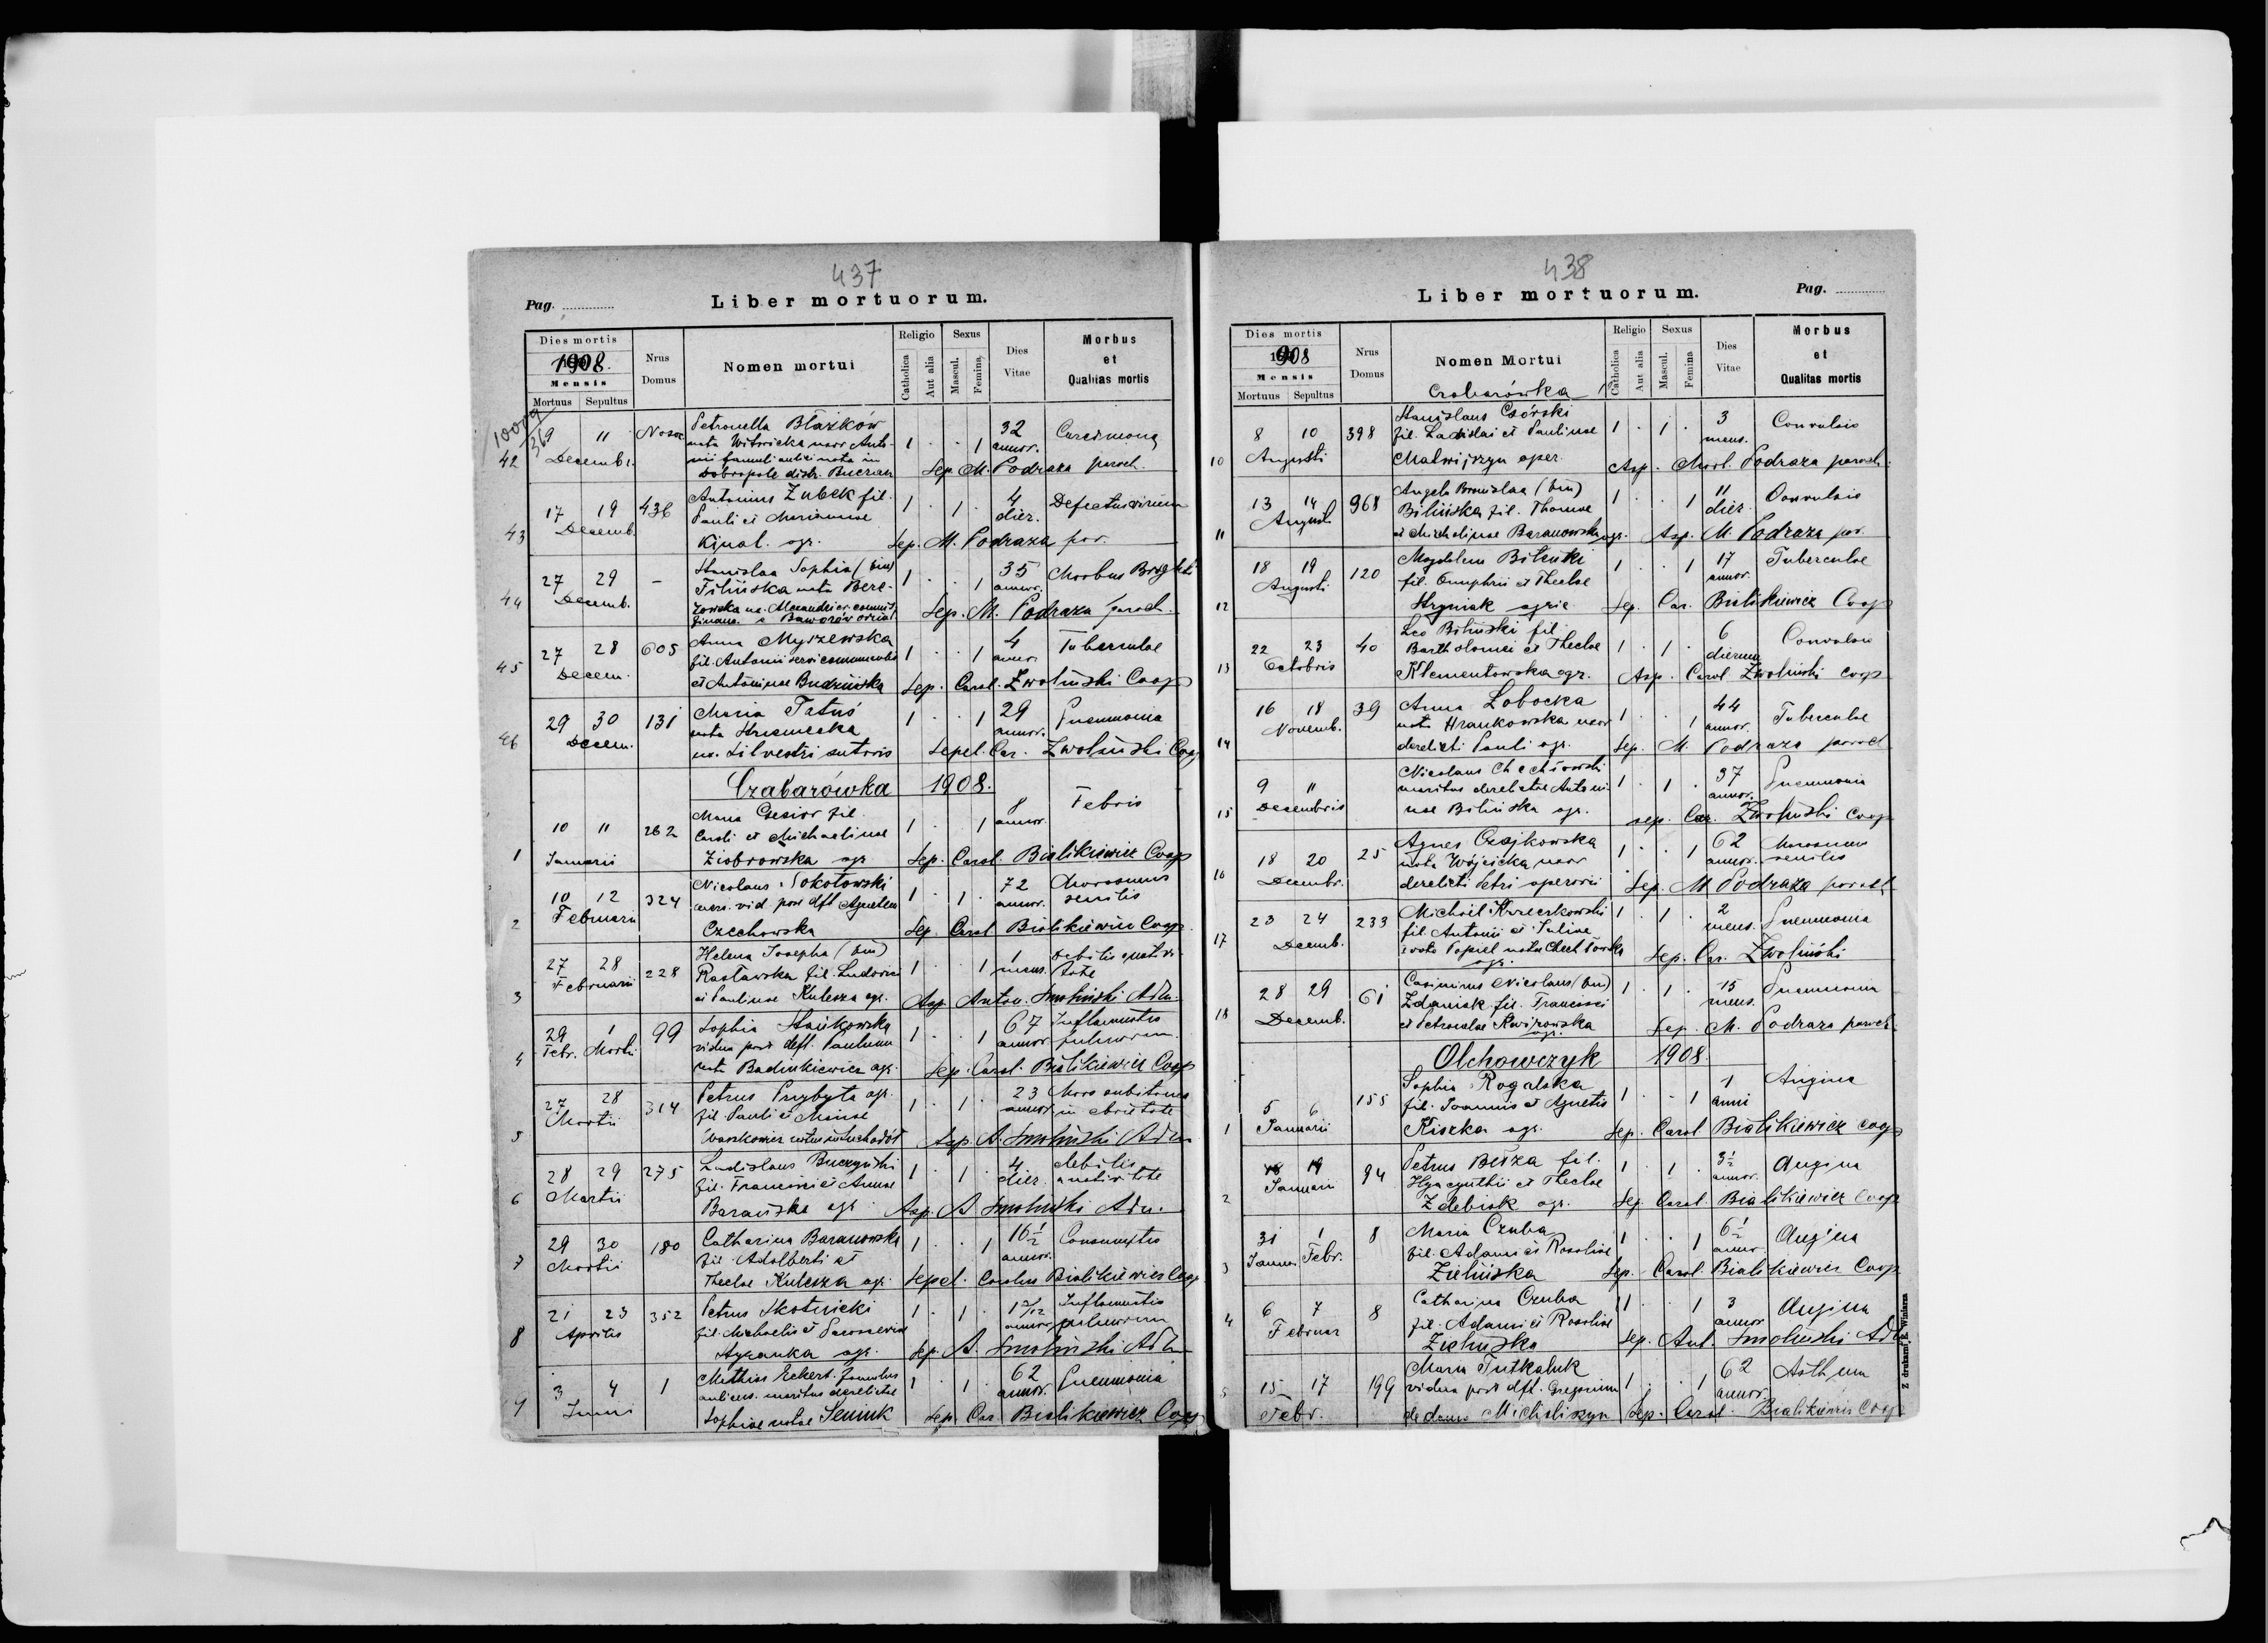 437
Pag.
Liber mortuorum.
Dies mortis
1908.
Mensis
Mortuus Sepultus
Nrus Domus
Nomen mortui
Religio
Catholica
Aut alia
Sexus
Mascul.
Femina
Dies Vitae
Morbus
et
Qualitas mortis
42
9 11
Decemb.
Petronella Błażków
nata Witwicka uxor Anto-
nii famuli aulici nata in
Dobropole distr. Buczacz
1 . . 1
32 annor.
Sep. M. Podraza paroch.
43
17 19 436
Decemb.
Antonius Zubek fil.
Pauli et Mariannae
Kinal. agr.
1 . 1 .
4 dier.
Defectus virium
Sep. M. Podraza par.
44
27 29 -
Decemb.
Stanislaa Sophia (bin)
Tilińska nata Bere-
zowska ux. Alexandri
1 . . 1
35 annor.
Morbus Brighti
Sep. M. Podraza paroch.
45
27 28 605
Decem.
Anna Myszewska
fil. Antonii
et Antoninae Budzińska
1 . . 1
4 annor.
Tuberculae
Sep. Carol. Zwoliński Coop
46
29 30 131
Decem.
Maria Tatuś
nata
ux. Silvestri sutoris
1 . . 1
29 annor.
Pneumonia
Sepel. Car. Zwoliński Coop
Czabarówka 1908.
1
10 11 262
Januarii
Maria Gesior fil.
Caroli et Michaelinae
Ziobrowska agr
1 . 1
8 annor.
Febris
Sep. Carol. Bialikiewicz Coop
2
10 12 324
Februarii
Nicolaus Sokołowski
vid. post dft Agnetem
Czechowska
1 . 1 .
72 annor.
Marasmus senilis
Sep. Carol Bialikiewicz Coop.
3
27 28 228
Februarii
Helena Josepha (bin)
Rasławska fil. Ludovici
et Paulinae Kulesza agr.
1 . . 1
1 mens.
Asp. Anton. Smoliński Adm.
4
29 1 99
Febr. Martii
Sophia Stańkowska
vidua post deft. Paulum
nata Badinkiewicz agr.
1 . . 1
67 annor.
Inflammatio pulmonum
Sep. Carol. Bialikiewicz Coop
5
27 28 314
Martii
Petrus Przybyła agr.
fil. Pauli et Mariae
1 . 1 .
23 annor.
Mors subitanea
in ebrietate
Asp. A. Smoliński Adm
6
28 29 275
Martii
Ladislaus Buczyński
fil. Francisci et Annae
Barańska agr.
1 . 1 .
4 dier.
debilis
a nativitate
Asp. A Smoliński Adm.
7
29 30 180
Martii
Catharina Baranowska
fil. Adalberti et
Theclae Kulesza agr.
1 . . 1
16 1/2 annor.
Consumptio
Sepel. Carolus Bialikiewicz Coop.
8
21 23 352
Aprilis
Petrus Skotnicki
fil. Michaelis et Parasceviae
agr.
1 . 1 .
annor
Inflammatio
pulmonum
Sep. A. Smoliński Adm
9
3 4 1
Junii
Mathias Eckert. famulus
aulicus. maritus derelictae
Sophiae natae Seniuk
1 . 1 .
62 annor.
Pneumonia
Sep. Car. Bialikiewicz Coop
438
Liber mortuorum.
Pag.
Dies mortis
1908
Mensis
Mortuus Sepultus
Nrus Domus
Nomen Mortui
Czabarówka
Religio
Catholica
Aut alia
Sexus
Mascul.
Femina
Dies Vitae
Morbus
et
Qualitas mortis
10
8 10 398
Augusti
Stanislaus Csórski
fil. Ladislai et Paulinae
Matwijszyn oper.
1 . 1 .
3 mens.
Convulsio
Asp. Mart. Podraza paroch.
11
13 14 968
Augusti
Angela Bronislaa (bin)
Bilińska fil. Thomae
et Michalinae Baranowska agr.
1 . . 1
11 dier.
Convulsio
Asp. M. Podraza par.
12
18 19 120
Augusti
Magdalena Biliński
fil. Onuphrii et Theclae
Hryniak agric
1 . . 1
17 annor.
Tuberculae
Sep. Car. Bialikiewicz Coop
13
22 23 40
Octobris
Leo Biliński fil.
Bartholomei et Theclae
Klementowska agr.
1 . 1 .
6 dierum
Convulsio
Asp. Carol Zwoliński coop
14
16 18 39
Novemb.
Anna Łobocka
nata Hrankowska uxor
derelicti Pauli agr.
1 . . 1
44 annor.
Tuberculae
Sep. M. Podraza paroch
15
9 11
Decembris
Nicolaus Chechłowski
maritus derelictae Antoni-
nae Bilińska agr.
1 . 1 .
37 annor.
Pneumonia
sep. Car. Zwoliński coop
16
18 20 25
Decembr.
Agnes Czajkowska
nata Wójcicka uxor
derelicti Petri operarii
1 . . 1
62 annor.
Marasmus senilis
Sep. M Podraza paroch
17
23 24 233
Decemb.
Michaël Krzeczkowski
fil. Antonii et Julinae
agr.
1 . 1 .
2 mens.
Pneumonia
Sep. Car. Zwoliński
18
28 29 61
Decemb.
Casimirus Nicolaus (bin)
Zdaniak fil. Francisci
et Petronelae
agr.
1 . 1 .
15 mens.
Pneumonia
Sep. M. Podraza paroch
Olchowczyk 1908.
1
5 6 155
Januarii
Sophia Rogalska
fil. Joannis et Agnetis
Kiszka agr.
1 . . 1
1 anni
Angina
Sep. Carol Bialikiewicz coop
2
18 19 94
Januarii
Petrus Beśza fil.
Hyacynthii et Theclae
Zdebiak agr.
1 . 1 .
3 1/2 annor.
Angina
Sep. Carol. Bialikiewicz Coop
3
31 1 8
Januar. Febr.
Maria Czuba
fil. Adami et Rosaliae
Zielińska
1 . . 1
6 1/2 annor
Angina
Sep. Carol. Bialikiewicz Coop
4
6 7 8
Februar
Catharina Czuba
fil. Adami et Rosaliae
Zielińska
1 . . 1
3 annor
Angina
Sep. Ant. Smoliński Adm
5
15 17 199
Febr.
Maria Tutkaluk
vidua post dft. Gregorium
de domo Michaliszyn
1 . . 1
62 annor.
Asthma
Sep. Carol. Bialikiewicz Coop
Z drukarni E. Winiarza